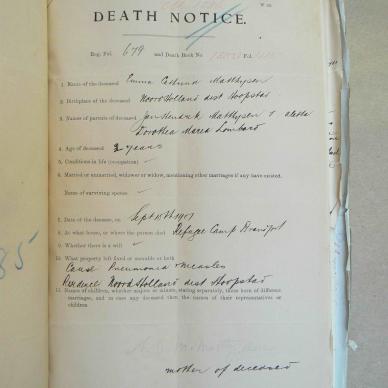 DEATH NOTICE.
Reg. Fol. 679 and Death Book No. Fol.
1. Name of the deceased Emma Catrina Matthysen
2. Birthplace of the deceased Noord Holland dist Hoopstad
3. Names of parents of deceased Jan Hendrik Matthysen & Aletta
Dorothea Maria Lombard
4. Age of deceased 2 years
5. Conditions in life (occupation)
6. Married or unmarried, widower or widow, mentioning other marriages if any have existed.
Name of surviving spouse
7. Date of the decease, on Sept 15th 1901
8. At what house, or where the person died Refugee Camp Brandfort
9. Whether there is a will
10. What property left fixed or movable or both
Cause Pneumonia & Measles
Residence Noord Holland dist Hoopstad
11. Names of children, whether majors or minors, stating separately, those born of different
marriages, and in case any deceased then the names of their representatives or
children
mother of deceased
85